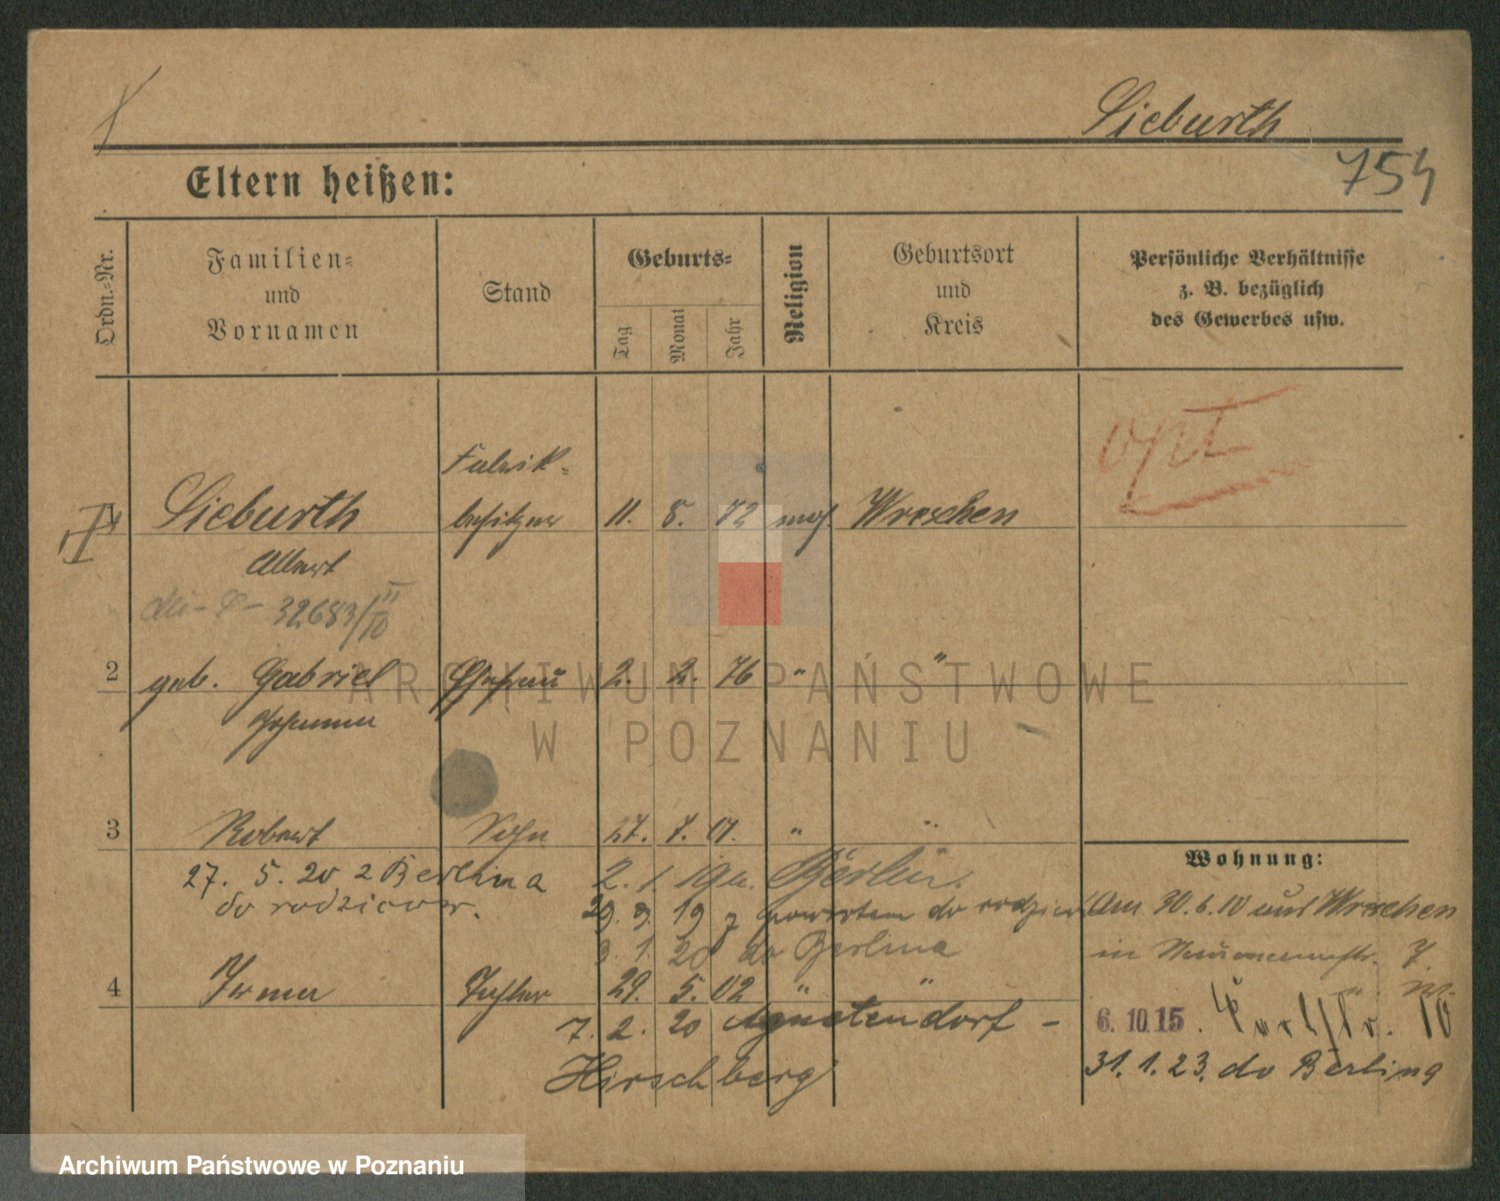 Lieburth
754
Eltern heißen:
Ordn.-Nr.
Familien- und Vornamen
Stand
Geburts-
Tag
Monat
Jahr
Religion
Geburtsort und Kreis
Persönliche Verhältnisse z. B. bezüglich des Gewerbes usw.
opt
Fabrik-
1 Lieburth besitzer 11. 5. 72 mos. Wreschen
Albert
32683/III
2 geb. Gabriel Ehefrau 2. 2. 76 " "
Johanna
3 Robert Sohn 27. 7. 01. " "
Wohnung:
27. 5. 20 z Berlina
2. 1. 19 Berlin.
do rodziców.
29. 9. 19 z powrotem do rodziców
Am 30.6.10 aus Wreschen
3. 1. 20 do Berlina
in
4 Irma Tochter 29. 5. 02 " "
7. 2. 20 Agnetendorf -
6. 10. 15. 10
Hirschberg
31. 1. 23. do Berlina
ARCHIWUM PAŃSTWOWE
W POZNANIU
Archiwum Państwowe w Poznaniu